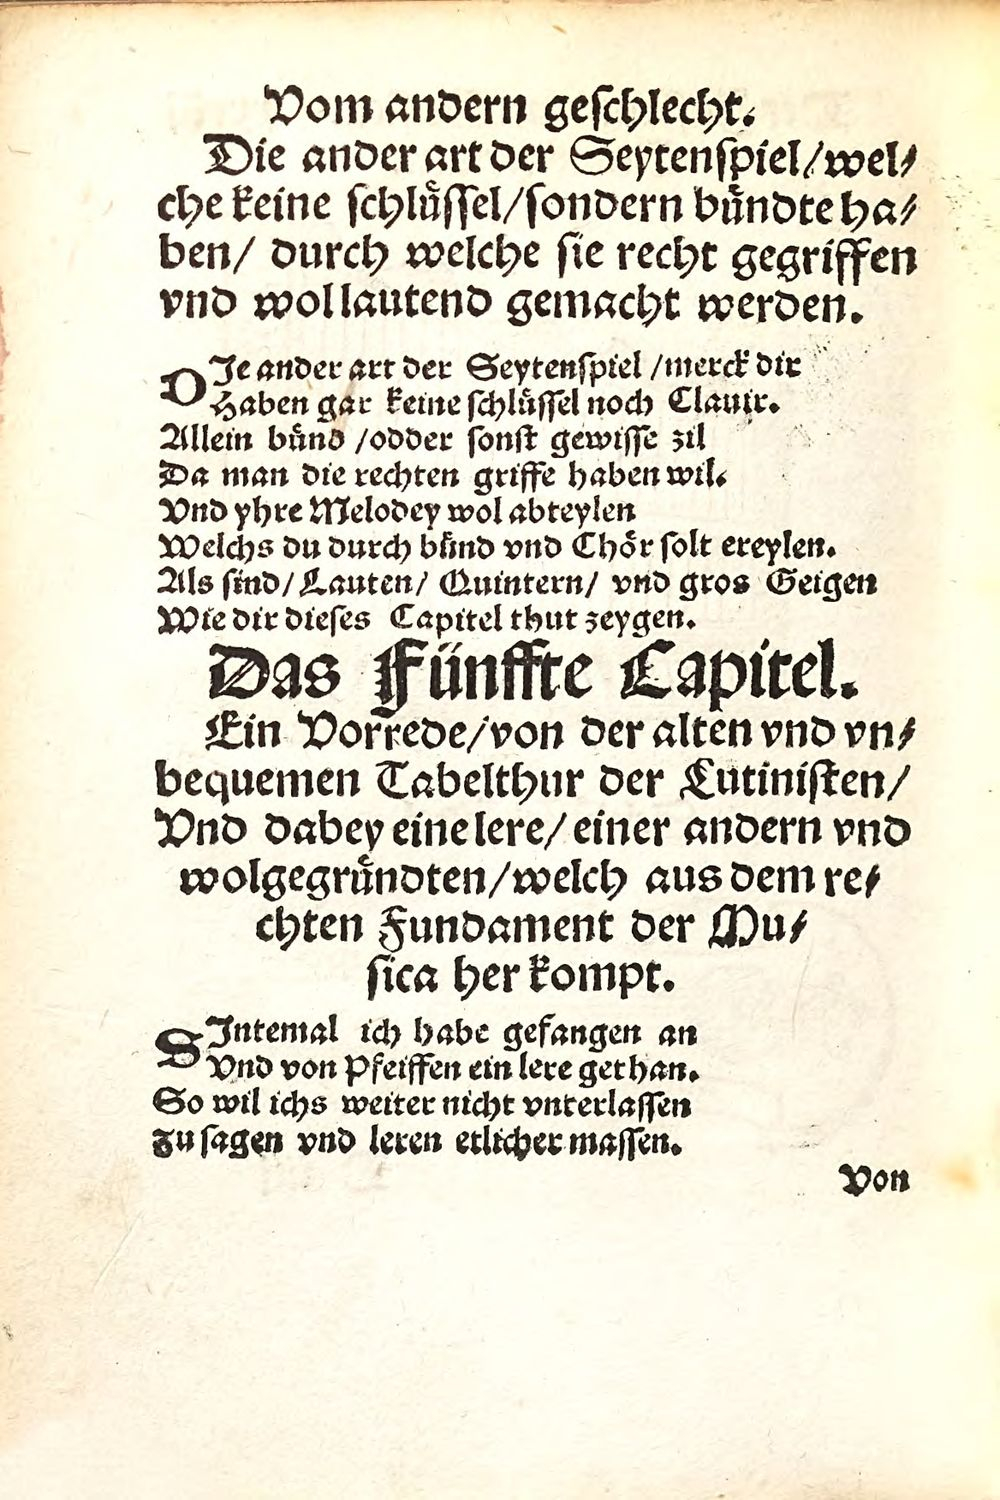 Vom andern geſchlecht.
Die ander art der Seytenſpiel/wel⸗
che keine ſchlüſſel/ſondern bündte ha⸗
ben/ durch welche ſie recht gegriffen
vnd wollautend gemacht werden.
DIe ander art der Seytenſpiel /merck dir
Haben gar keine ſchlüſſel noch Clauir.
Allein bünd /odder ſonſt gewiſſe zil
Da man die rechten griffe haben wil.
Vnd yhre Melodey wol abteylen
Welchs du durch bünd vnd Chör ſolt ereylen.
Als ſind/ Lauten/ Quintern/ vnd gros Geigen
Wie dir dieſes Capitel thut zeygen.
Das Fünffte Capitel.
Ein Vorrede/von der alten vnd vn⸗
bequemen Tabelthur der Lutiniſten/
Vnd dabey eine lere/ einer andern vnd
wolgegründten/welch aus dem re⸗
chten Fundament der Mu⸗
ſica her kompt.
SIntemal ich habe gefangen an
Vnd von Pfeiffen ein lere gethan.
So wil ichs weiter nicht vnterlaſſen
Zu ſagen vnd leren etlicher maſſen.
Von